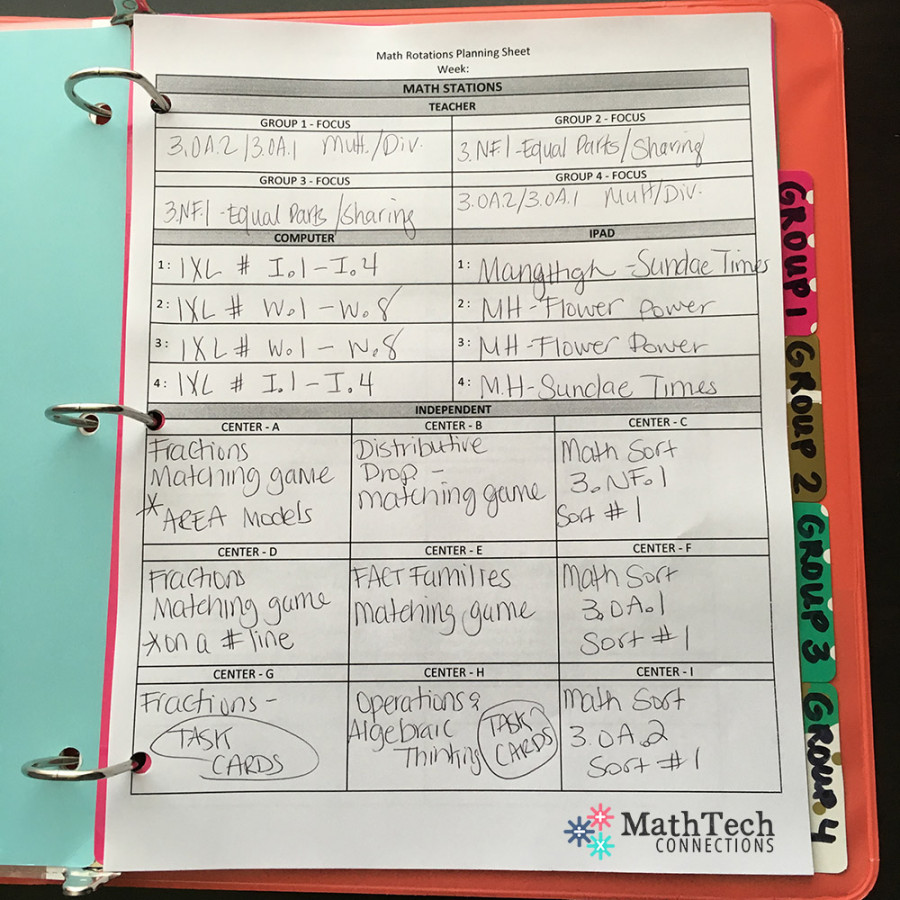 Math Rotations Planning Sheet
Week:
MATH STATIONS
TEACHER
GROUP 1 - FOCUS
3.OA.2/3.OA.1 Mult./Div.
GROUP 2 - FOCUS
3.NF.1-Equal Parts/Sharing
GROUP 3 - FOCUS
3.NF.1 -Equal Parts/Sharing
GROUP 4 - FOCUS
3.OA.2/3.OA.1 Mult/Div.
COMPUTER
1: IXL # I.1-I.4
2: IXL # W.1-W.8
3: IXL # W.1-W.8
4: IXL # I.1-I.4
IPAD
1: MangHigh -Sundae Times
2: MH-Flower Power
3: MH-Flower Power
4: M.H-Sundae Times
INDEPENDENT
CENTER - A
Fractions
Matching game
* AREA Models
CENTER - B
Distributive
Drop -
matching game
CENTER - C
Math Sort
3.NF.1
Sort #1
CENTER - D
Fractions
Matching game
*on a # line
CENTER - E
FACT Families
matching game
CENTER - F
Math Sort
3.OA.1
Sort #1
CENTER - G
Fractions -
TASK
CARDS
CENTER - H
Operations &
Algebraic
Thinking
TASK
CARDS
CENTER - I
Math Sort
3.OA.2
Sort #1
MathTech
CONNECTIONS
GROUP 1
GROUP 2
GROUP 3
GROUP 4